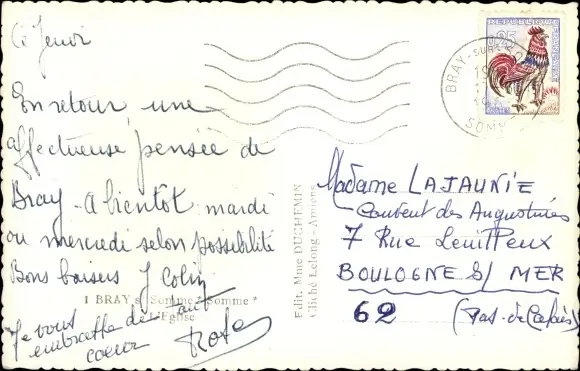 Ce Jeudi
En retour, une
affectueuse pensée de
Bray - A bientôt mardi
ou mercredi selon possibilité
Bons baisers J Colin
1 BRAY s/ Somme "Somme"
L'Eglise
Je vous
embrasse de tout
coeur
Edit. Mme DUCHEMIN
Cliché Lelong - Amiens
REPUBLIQUE FRANÇAISE
0,25
BRAY-SUR-SO
SOMM
Madame LAJAUNIE
Couvent des Augustines
7 Rue Leuilleux
BOULOGNE S/ MER
62 (Pas-de-Calais)